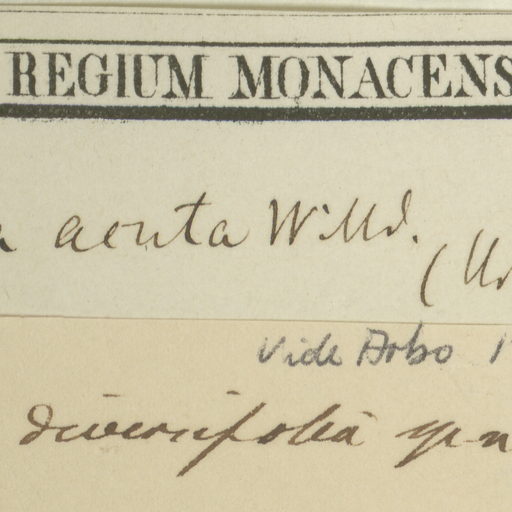 REGIUM MONACENS
acuta Willd.
Vide Dobo
diversifolia